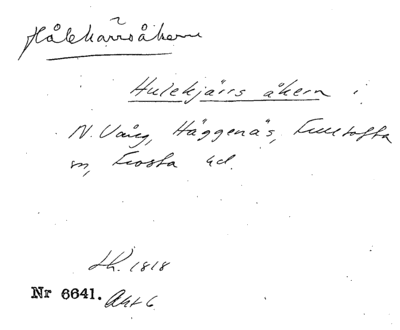 Hålekärrsåkern
Hulekjärrs åkern i
N. Vång, Häggenäs, Fulltofta
sn, Frosta hd.
Lh. 1818
Nr 6641. Akt 6